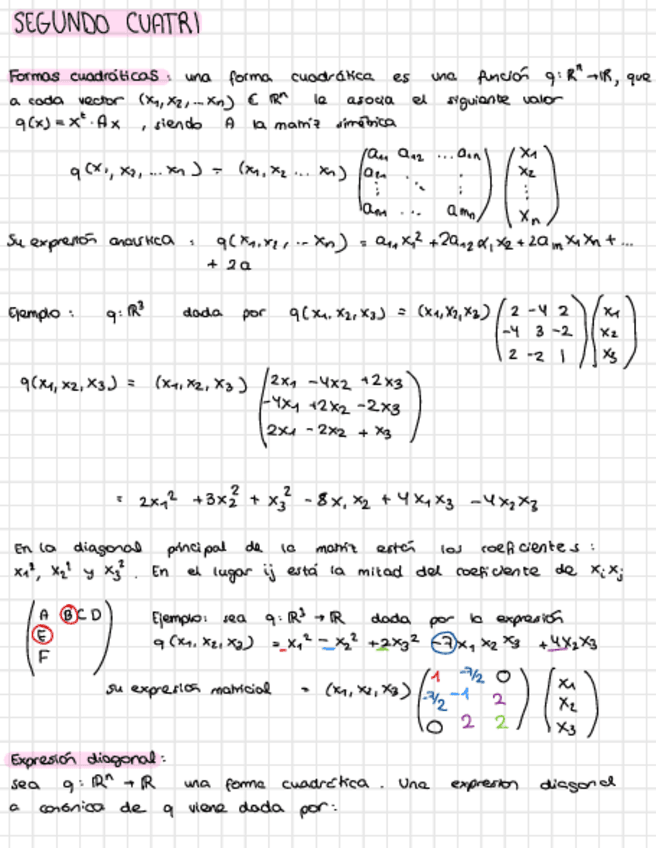 SEGUNDO CUATRI
Formas cuadráticas: una forma cuadrática es una función q: ℝⁿ → ℝ, que
a cada vector (x₁, x₂, ... xₙ) ∈ ℝⁿ le asocia el siguiente valor
q(x) = xᵗ · A x , siendo A la matriz simétrica
q(x₁, x₂, ... xₙ) = (x₁, x₂ ... xₙ) (a₁₁ a₁₂ ... a₁ₙ) (x₁)
x₂
⋮ ⋱ ⋮ ⋮
... aₘₙ xₙ
Su expresión analítica : q(x₁, x₂, ... xₙ) = a₁₁ x₁² + 2a₁₂ x₁ x₂ + 2a₁ₙ x₁ xₙ + ...
+ 2a
Ejemplo : q: ℝ³ dada por q(x₁, x₂, x₃) = (x₁, x₂, x₃) (2 -4 2) (x₁)
-4 3 -2 x₂
2 -2 1 x₃
q(x₁, x₂, x₃) = (x₁, x₂, x₃) (2x₁ -4x₂ +2x₃)
-4x₁ +2x₂ -2x₃
2x₁ - 2x₂ + x₃
= 2x₁² + 3x₂² + x₃² - 8x₁ x₂ + 4x₁x₃ - 4x₂x₃
En la diagonal principal de la matriz están los coeficientes :
x₁², x₂² y x₃². En el lugar ij está la mitad del coeficiente de xᵢ xⱼ
A B C D
E
F
Ejemplo: sea q: ℝ³ → ℝ dada por la expresión
q(x₁, x₂, x₃) = x₁² - x₂² + 2x₃² - 7x₁ x₂ x₃ + 4x₂x₃
su expresión matricial = (x₁, x₂, x₃) (1 -7/2 0) (x₁)
-7/2 -1 2 x₂
0 2 2 x₃
Expresión diagonal:
sea q: ℝⁿ → ℝ una forma cuadrática. Una expresión diagonal
o canónica de q viene dada por: